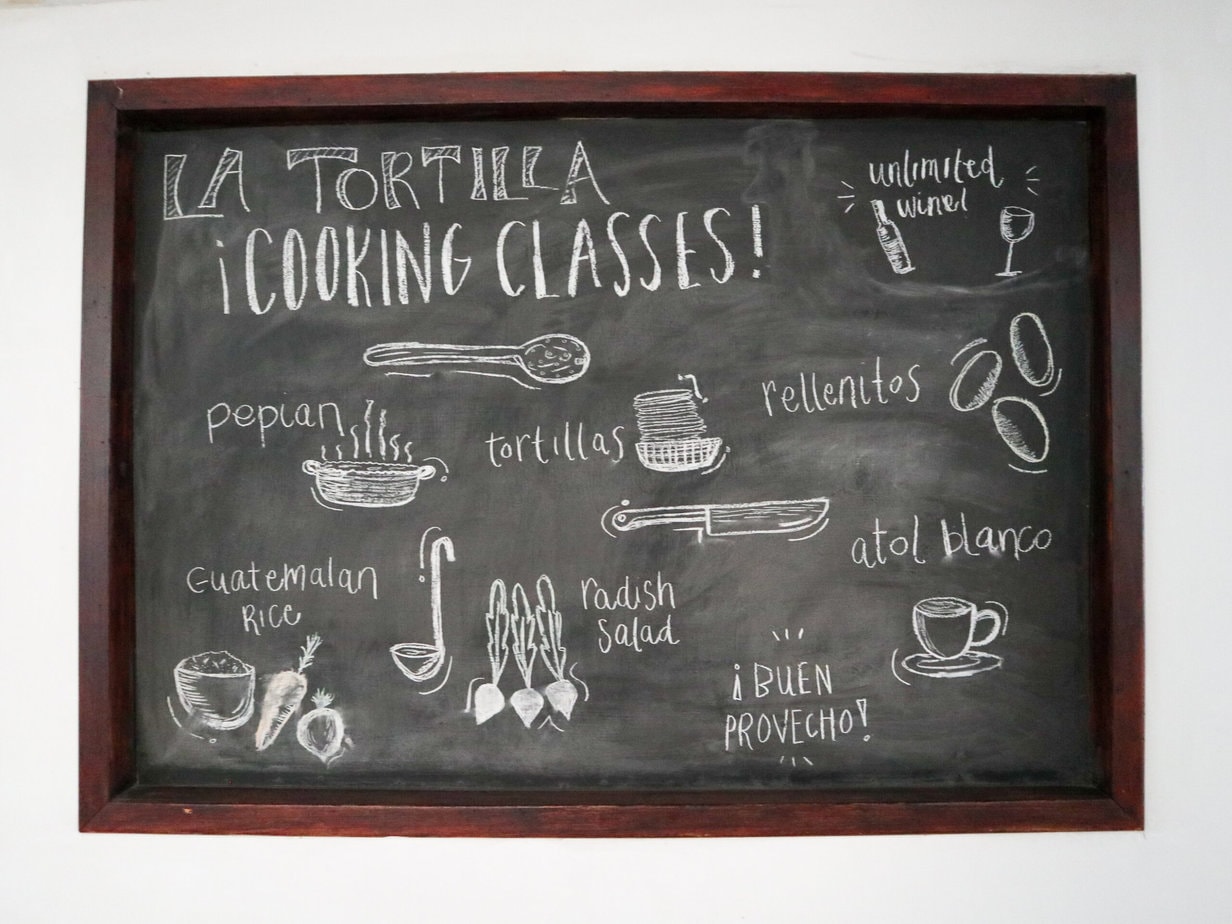 LA TORTILLA
¡COOKING CLASSES!
unlimited
wine!
pepian
tortillas
rellenitos
atol blanco
Guatemalan
Rice
radish
salad
¡BUEN
PROVECHO!